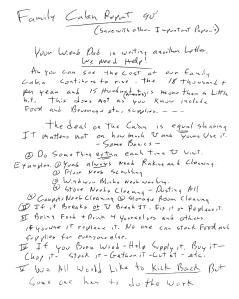 Family Cabin Report 90'
(Save with other Important Papers)
Your Woods Dad is writing another letter.
We need Help!
As you can see the Cost of our Family
Cabin Continues to rise - the 18 Thousand +
per year and 15 Hundred is more than a Little
bit. This does not as you know include
Food and Beverage etc, supplies. - - -
the deal on the Cabin is equal sharing
IT matters not on how much U and yours Use it.
- Some Basics -
① Do Something extra each time U Visit.
Examples ① Yards always need Raking and Cleaning
② Floor Needs Scrubbing
③ Windows Blinds Need washing
④ Stove Needs Cleaning - Dusting All
⑤ Carpets Need Cleaning ⑥ Storage Room Cleaning
II If it Breaks or U Break IT. Fix it or Replace it.
III Bring Food + Drink 4 yourselves and others.
if you use it replace it. No one can stock Food and
supplies for everyone else.
IV If you Burn Wood - Help Supply it. Buy it -
Chop it - Stack it - Chainsaw it - Cut it - etc.
V We All Would Like to Kick Back But
Some one has to do the work